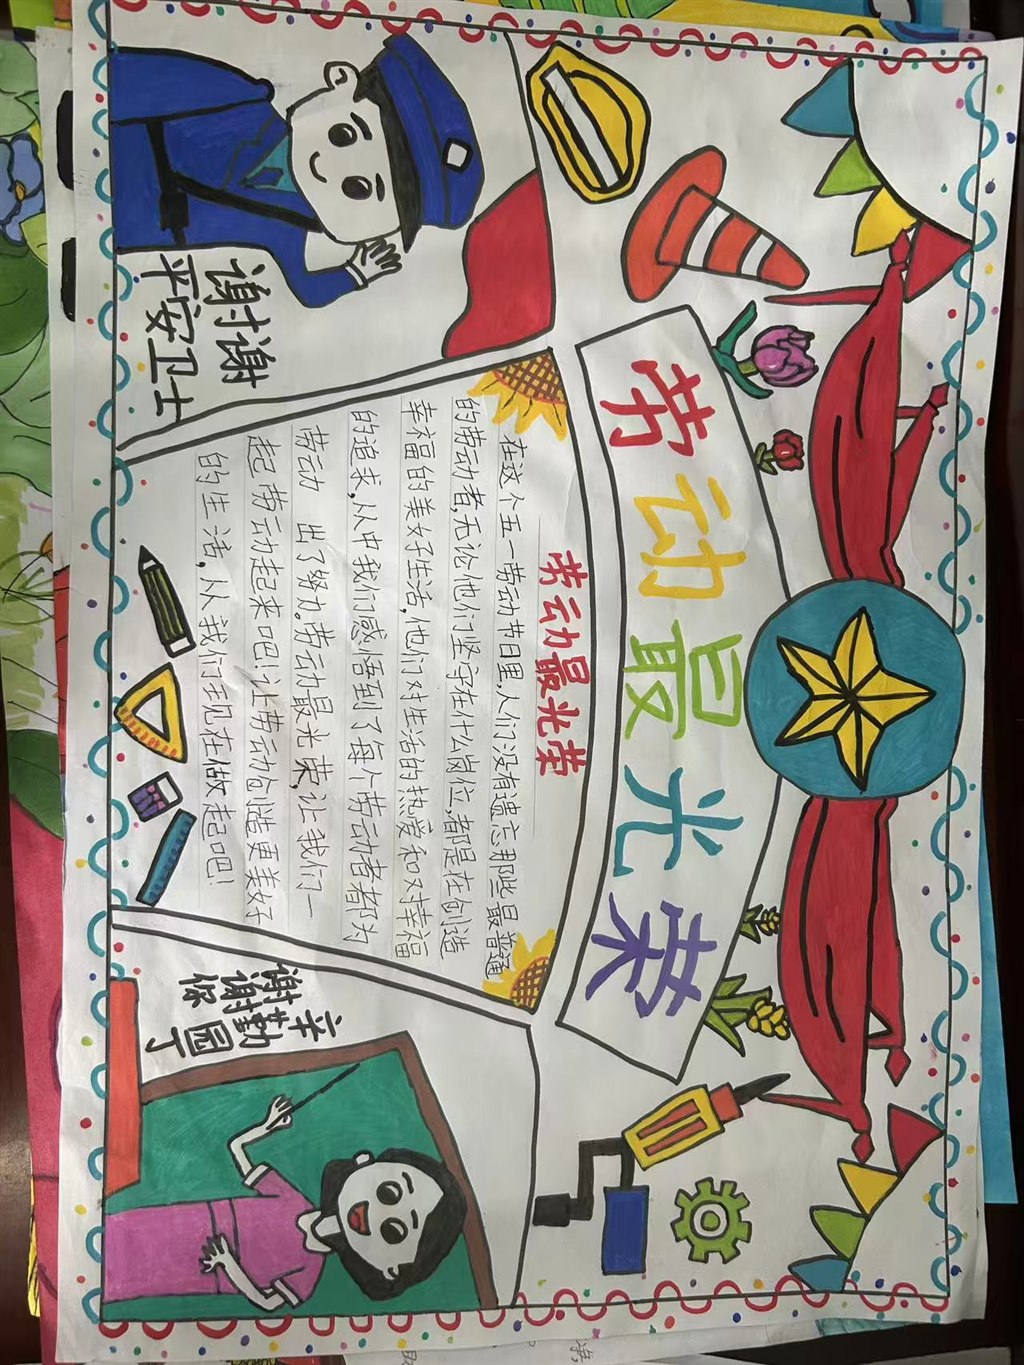 劳动最光荣
劳动最光荣
在这个五一劳动节日里,人们没有遗忘那些最普通
的劳动者,无论他们坚守在什么岗位,都是在创造
幸福的美好生活,他们对生活的热爱和对幸福
的追求,从中我们感悟到了每个劳动者都为
劳动 出了努力。劳动最光荣,让我们一
起劳动起来吧!让劳动创造更美好
的生活,从我们现在做起吧!
谢谢
平安卫士
谢谢你
辛勤园丁